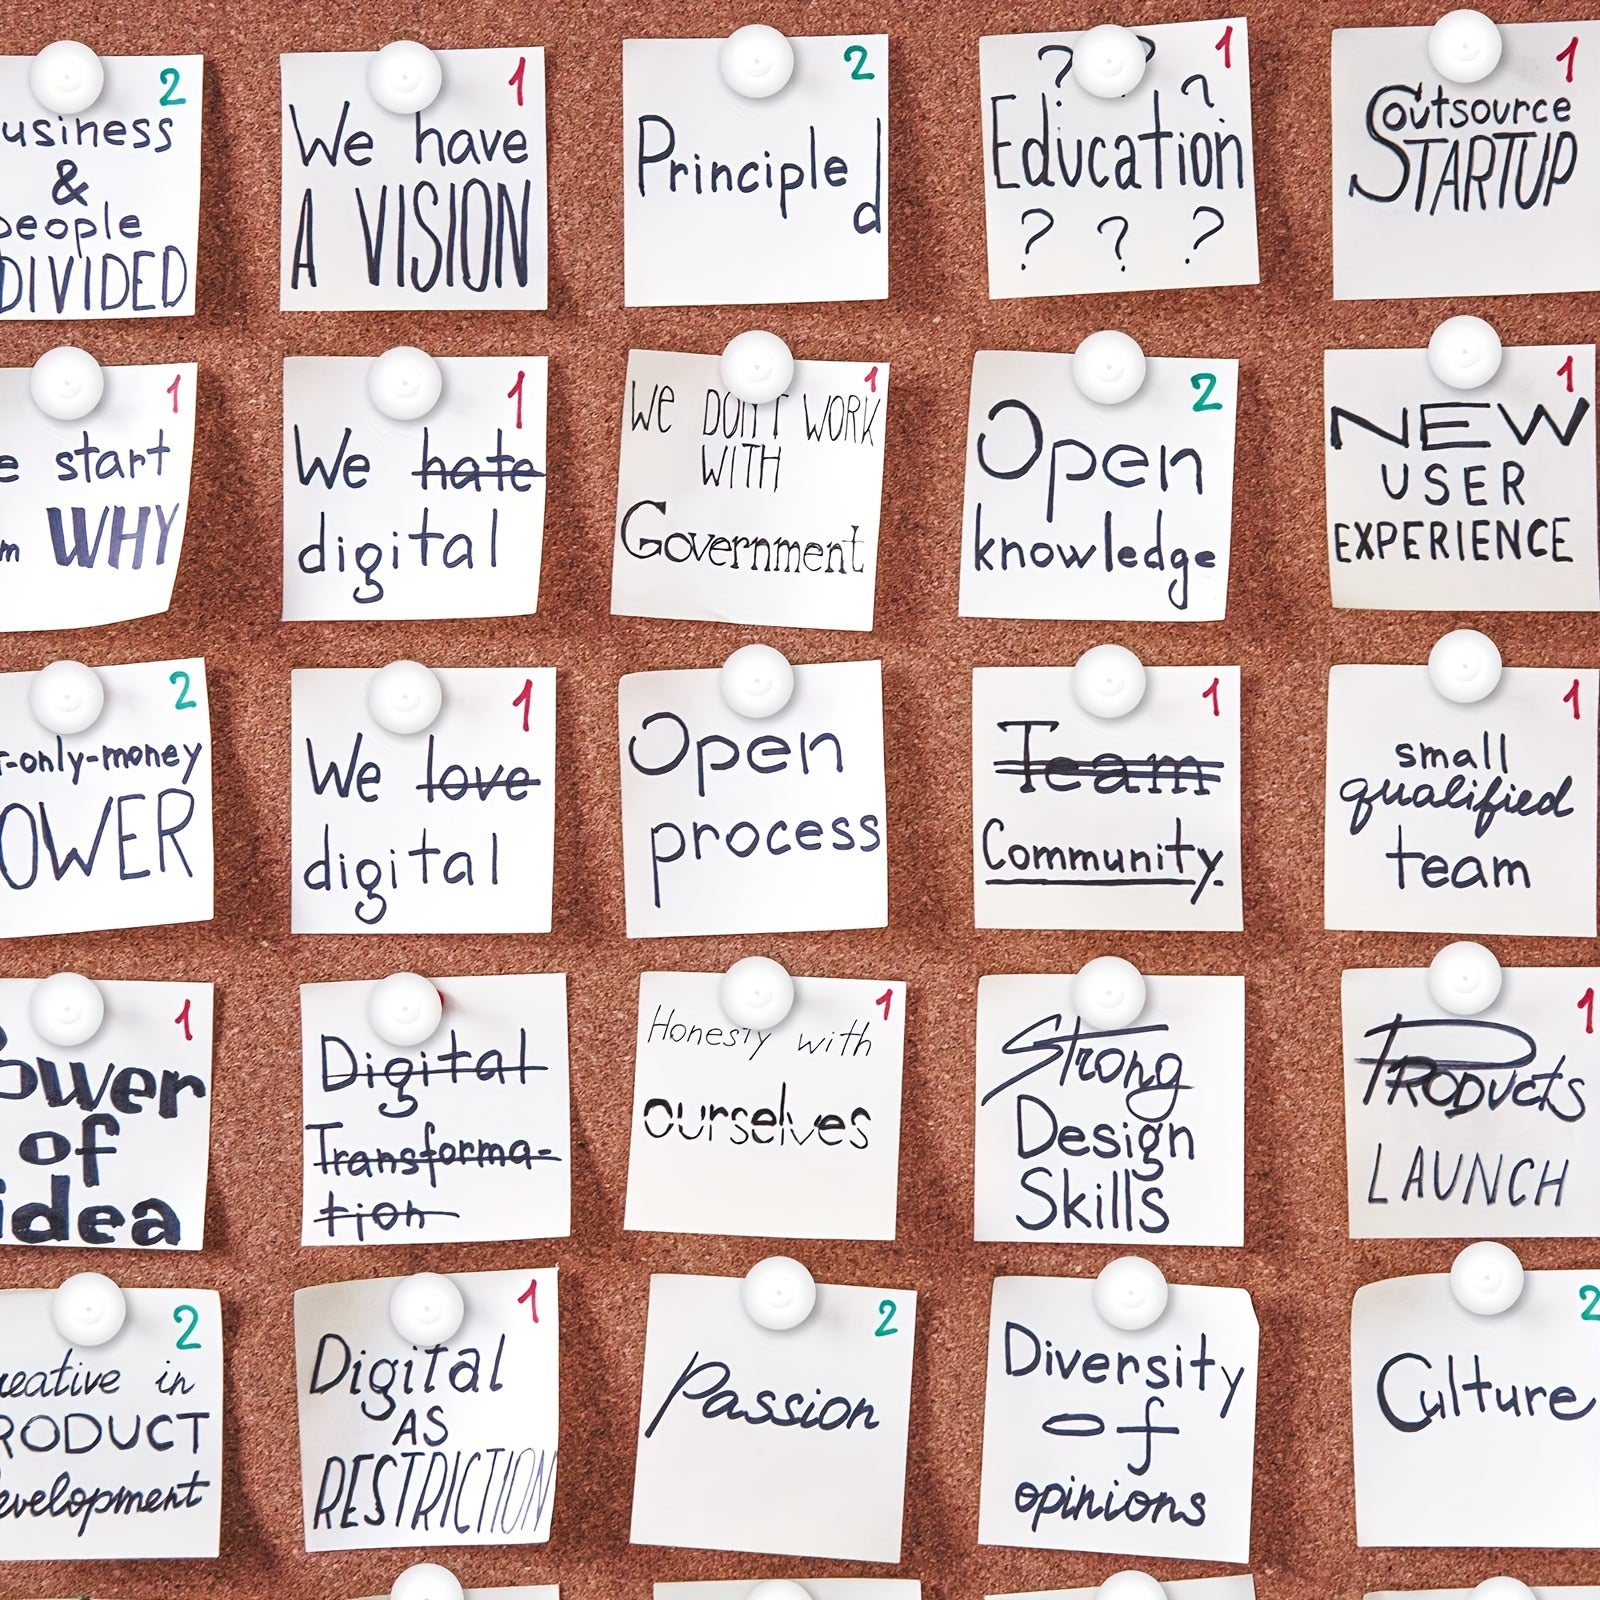 2
usiness
&
people
DIVIDED
1
We have
A VISION
2
Principle
d
1
? ? ?
Education
? ? ?
1
Outsource
STARTUP
1
e start
m WHY
1
We hate
digital
1
WE DON'T WORK
WITH
Government
2
Open
knowledge
1
NEW
USER
EXPERIENCE
2
-only-money
OWER
1
We love
digital
Open
process
1
Team
Community.
1
small
qualified
team
1
ower
of
idea
Digital
Transforma-
tion
1
Honesty with
ourselves
Strong
Design
Skills
1
PRODUCTS
LAUNCH
2
reative in
RODUCT
evelopment
1
Digital
AS
RESTRICTION
2
Passion
Diversity
of
opinions
2
Culture